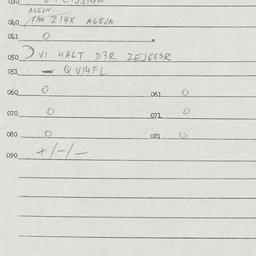 ALEIN
040 214X ALEJN
041 0
050 VI HALT D3R ZEJG83R
051 — QVI4FL
060 0 061 0
070 0 071 0
080 0 081 0
090 +/-/-